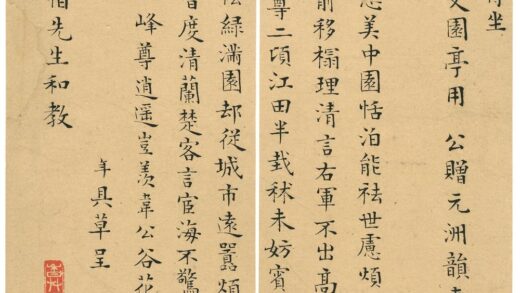 坐
園亭用 公贈元洲韻
美中園恬泊能祛世慮煩
前移榻理清言右軍不出高
尊二頃江田半栽秫未妨賓
綠滿園却從城市遠囂煩
度清蘭楚客言宦海不驚
峰尊逍遥豈羡韋公谷花
先生和教
年具草呈